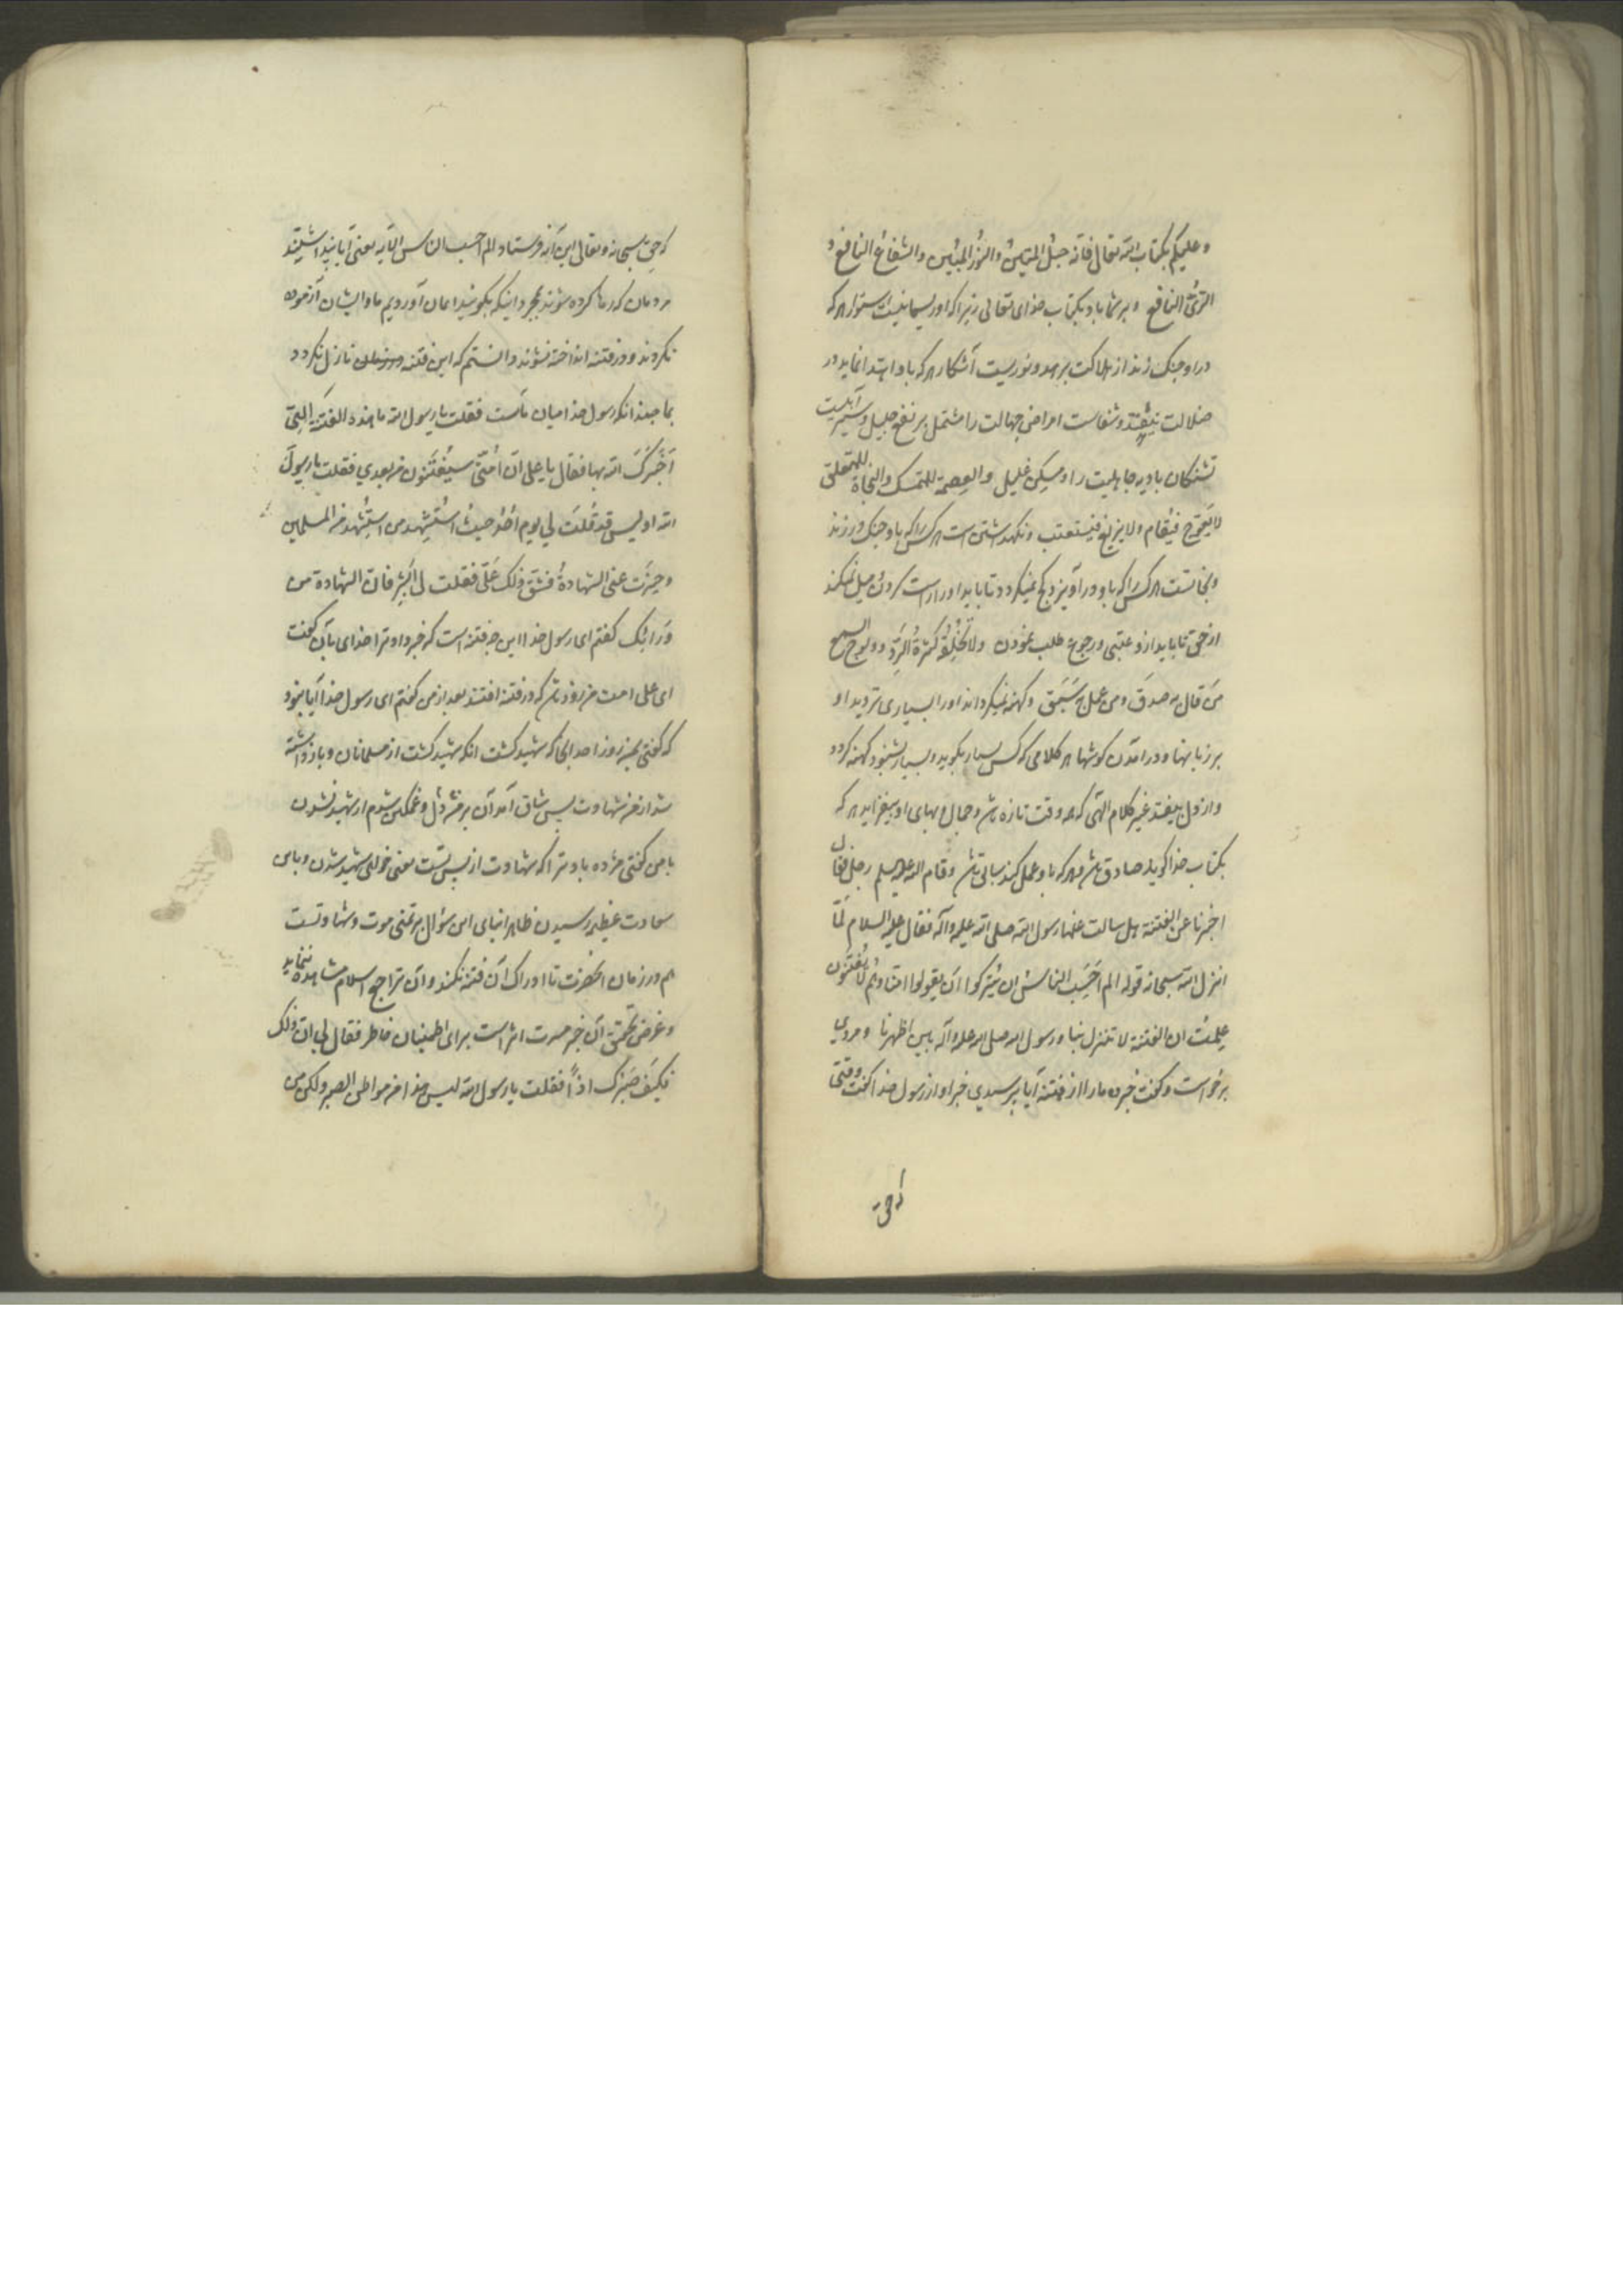 و علیکم بکتاب الله تعالی فانه حبل المتین و النور المبین و الشفاء النافع و
الرّیّ الناقع و بر شما باد بکتاب خدای تعالی زیرا که او ریسمانیست استوار هر که
در او چنک زند از هلاکت برهد و نوریست آشکار هر که باو اهتدا نماید در
ضلالت نیفتد و شفاست امراض جهالت را مشتمل بر نفع جلیل و سیرابیست
تشنکان بادیه جاهلیت را و مسکن غلیل و العصمة للمتمسک و النجاة للمتعلق
لا یعوج فیقام و لا یزیغ فیستعتب و نکهداشتن است هر کس را که باو چنک در زند
و نجاتست هر کس را که باو در آویزد کج نمیکردد تا باید او را راست کردن میل نمیکند
از حق تا باید ازو عتبی و رجوع طلب نمودن و لا تخلقه کثرة الردّ و ولوج السمع
من قال به صدق و من عمل به سبق و کهنه نمیکرداند او را بسیاری تردید او
بر زبانها و در آمدن کوشها هر کلامی که کس بسیار بکوید و بسیار بشنود کهنه کردد
و از دل بیفتد غیر کلام الهی که هر وقت تازه باش و جمال و بهای او بیفزاید هر که
بکتاب خدا کوید صادق باش و هر که باو عمل کند سابق باش و قام الیه علیه السلم رجل فقال
اخبرنا عن الفتنة هل سالت عنها رسول الله صلی الله علیه و آله فقال علیه السلام لمّا
انزل الله سبحانه قوله الم احسب الناس ان یترکوا ان یقولوا امنا و هم لا یفتنون
علمت ان الفتنة لا تنزل بنا و رسول الله صلی الله علیه و آله بین اظهرنا و مردی
برخواست و کفت خبر ده ما را از فتنه آیا پرسیدی خبر او از رسول خدا کفت وقتی
که حق
که حق سبحانه و تعالی این آیه فرستاد الم احسب الناس الآیه یعنی آیا پنداشتند
مردمان که رها کرده شوند بمجرد اینکه بکویند ایمان آوردیم ما و ایشان آزموده
نکردند و در فتنه انداخته نشوند دانستم که این فتنه نازل نکردد
بما چندانکه رسول خدا میان ماست فقلت یا رسول الله ما هذه الفتنة التی
اخبرک الله بها فقال یا علی انّ امّتی سیفتنون من بعدی فقلت یا رسول
الله او لیس قد قلت لی یوم احد حیث استشهد من استشهد من المسلمین
و حیزت عنی الشهادة فشق ذلک علی فقلت لی ابشر فان الشهادة من
ورائک کفتم ای رسول خدا این چه فتنه است که خبر داد ترا خدای بآن کفت
ای علی امت من زود باش که در فتنه افتند بعد از من کفتم ای رسول خدا آیا نبود
که کفتی بمن روز احد آنجا که شهید کشت آنکه شهید کشت از مسلمانان و باز داشته
شد از من شهادت پس شاق آمد آن بر من دل و غمکین شدم از شهید نشدن
با من کفتی مژده باد ترا که شهادت از پس تست یعنی خواهی شهید شدن و باین
سعادت عظیم رسیدن ظاهرا بنای این سؤال بر تمنی موت و شهادتست
هم در زمان آنحضرت تا ادراک آن فتنه نکند و آن تراجع اسلام مشاهده ننماید
و غرض تحقق آن خبر مسرت اثر است برای اطمینان خاطر فقال لی ان ذلک
فکیف صبرک اذا فقلت یا رسول الله لیس هذا من مواطن الصبر و لکن من